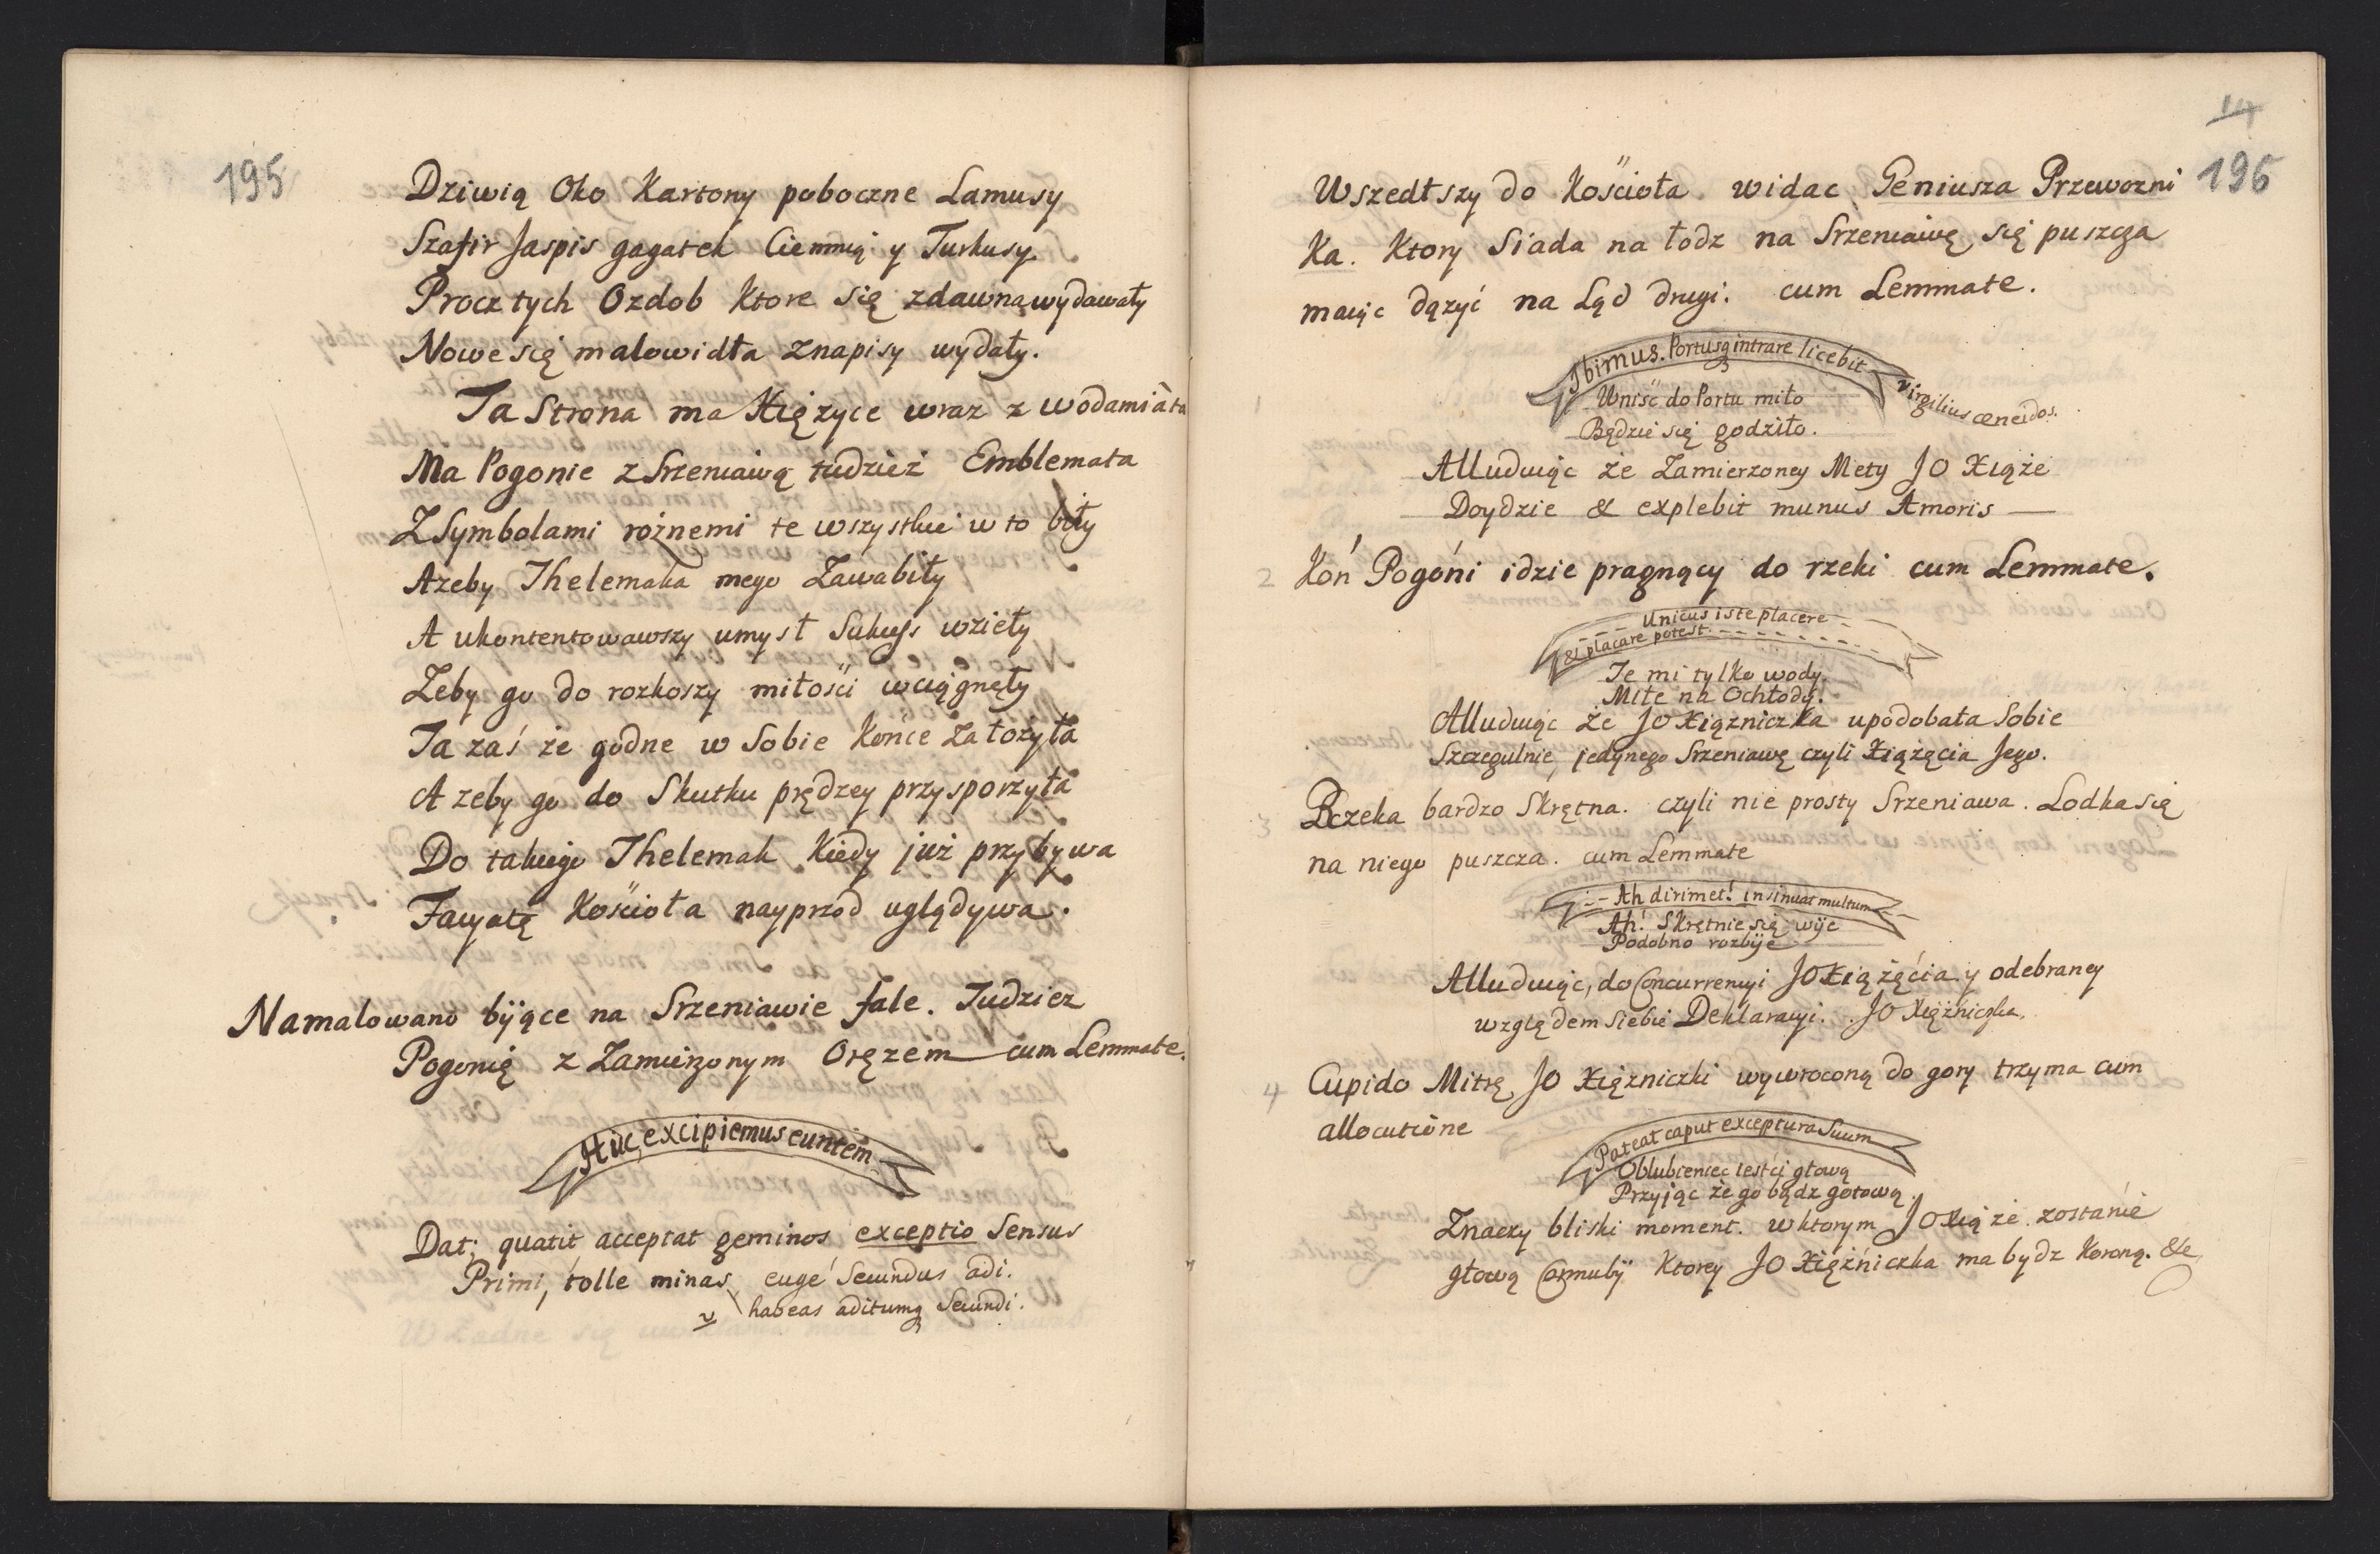 195
Dziwią Oko Kartony poboczne Lamusy
Szafir Jaspis gagatek Ciemnią y Turkusy
Procz tych Ozdob Ktore się zdawna wydawały
Nowe się malowidła znapisy wydały.
Ta Strona ma Xiężyce wraz z wodami
Ma Pogonie z Srzeniawą tudzież Emblemata
Z Symbolami rożnemi te wszystkie w to biły
Azeby Thelemaka mego Zawabiły
A ukontentowawszy umysł Sukcss wzieły
Zeby go do rozkoszy miłości wciągnęły
Ta zaś że godne w Sobie Końce Założyła
A zeby go do Skutku prędzey przysporzyła
Do takiego Thelemak Kiedy już przybywa
Facyatę Kościoła nayprzod uględywa.
Namalowano bijące na Srzeniawie fale. Tudziez
Pogonię z Zamierzonym Orężem cum Lemmate.
Huc excipiemus euntem
Dat; quatit acceptat geminos exceptio Sensus
Primi, tolle minas, euge Secundus adi.
v habeas aditumq Secundi.
14
196
Wszedłszy do Kościoła widac Geniusza Przewozni
Ka. Ktory Siada na łodz na Srzeniawę się puszcza
maiąc dązyć na Ląd drugi. cum Lemmate.
1
Ibimus. Portusq intrare licebit
Virgilius æneidos.
Wniść do Portu miło
Będzie się godziło.
Alluduiąc że Zamierzoney Mety JO Xiąże
Doydzie & explebit munus Amoris —
2 Koń Pogóni idzie pragnący do rzeki cum Lemmate.
Unicus iste placere
& placare potest.
Te mi tylko wody
Miłe na Ochłody.
Alluduiąc że JO Xiązniczka upodobała Sobie
Szczegulnie, jedynego Srzeniawę czyli Xiążęcia Jego.
3
Rzeka bardzo Skrętna. czyli nie prosty Srzeniawa. Lodka się
na niego puszcza. cum Lemmate
Ah dirimet! insinuat multum
Ah! Skrętnie się wije
Podobno rozbije
Alluduiąc, do Concurrencyi JO Xiążęćia y odebraney
względem Siebie Deklaracyi. JO Xiężniczka.
4 Cupido Mitrę JO Xiężniczki wywroconą do gory trzyma cum
allocutione
Pateat caput exceptura Suum
Oblubieniec iest ci głową
Przyjąc że go bądz gotową.
Znaczy bliski moment. w ktorym JO Xiąże zostanie
głową Ktorey JO Xiężniczka ma bydz Koroną. &c